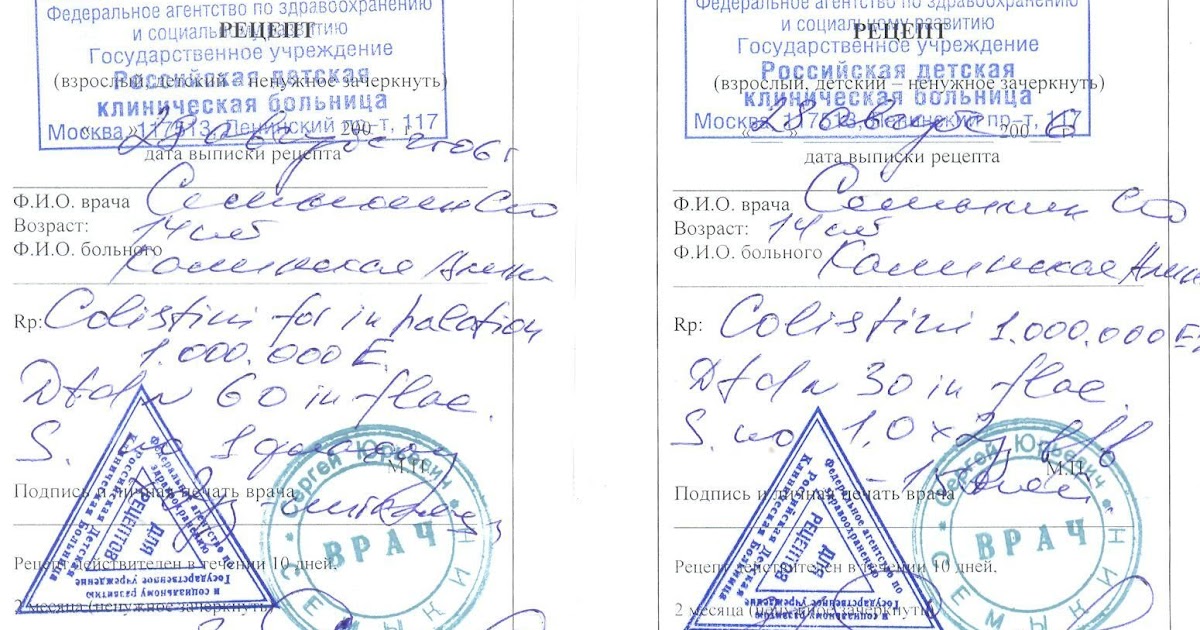 Федеральное агентство по здравоохранению
и социальному развитию
РЕЦЕПТ
Государственное учреждение
Российская детская
(взрослый, детский – ненужное зачеркнуть)
клиническая больница
Москва, 117513, Ленинский пр-т, 117
28 августа 2006 г
200 г.
дата выписки рецепта
Ф.И.О. врача
Возраст: 14 лет
Ф.И.О. больного Каминская Алина
Rp: Colistini for inhalation
1.000.000 E.
Dtd N 60 in flac.
S. по 1
М.П.
Подпись и личная печать врача
Рецепт действителен в течении 10 дней.
2 месяца (ненужное зачеркнуть)
Государственное учреждение
Российская Детская
Клиническая Больница
Федеральное агентство по
здравоохранению
и социальному развитию
ДЛЯ
РЕЦЕПТОВ
Сергей Юрьевич
ВРАЧ
Федеральное агентство по здравоохранению
и социальному развитию
РЕЦЕПТ
Государственное учреждение
Российская детская
(взрослый, детский – ненужное зачеркнуть)
клиническая больница
Москва, 117513, Ленинский пр-т, 117
28 августа 200 6 г.
дата выписки рецепта
Ф.И.О. врача
Возраст: 14 лет
Ф.И.О. больного Каминская Алина
Rp: Colistini 1.000.000
Dtd N 30 in flac.
S. по 1,0 x 2 в/в
М.П.
Подпись и личная печать врача
Рецепт действителен в течении 10 дней.
2 месяца (ненужное зачеркнуть)
Государственное учреждение
Российская Детская
Клиническая Больница
Федеральное агентство по
здравоохранению
и социальному развитию
ДЛЯ
РЕЦЕПТОВ
Сергей Юрьевич
ВРАЧ